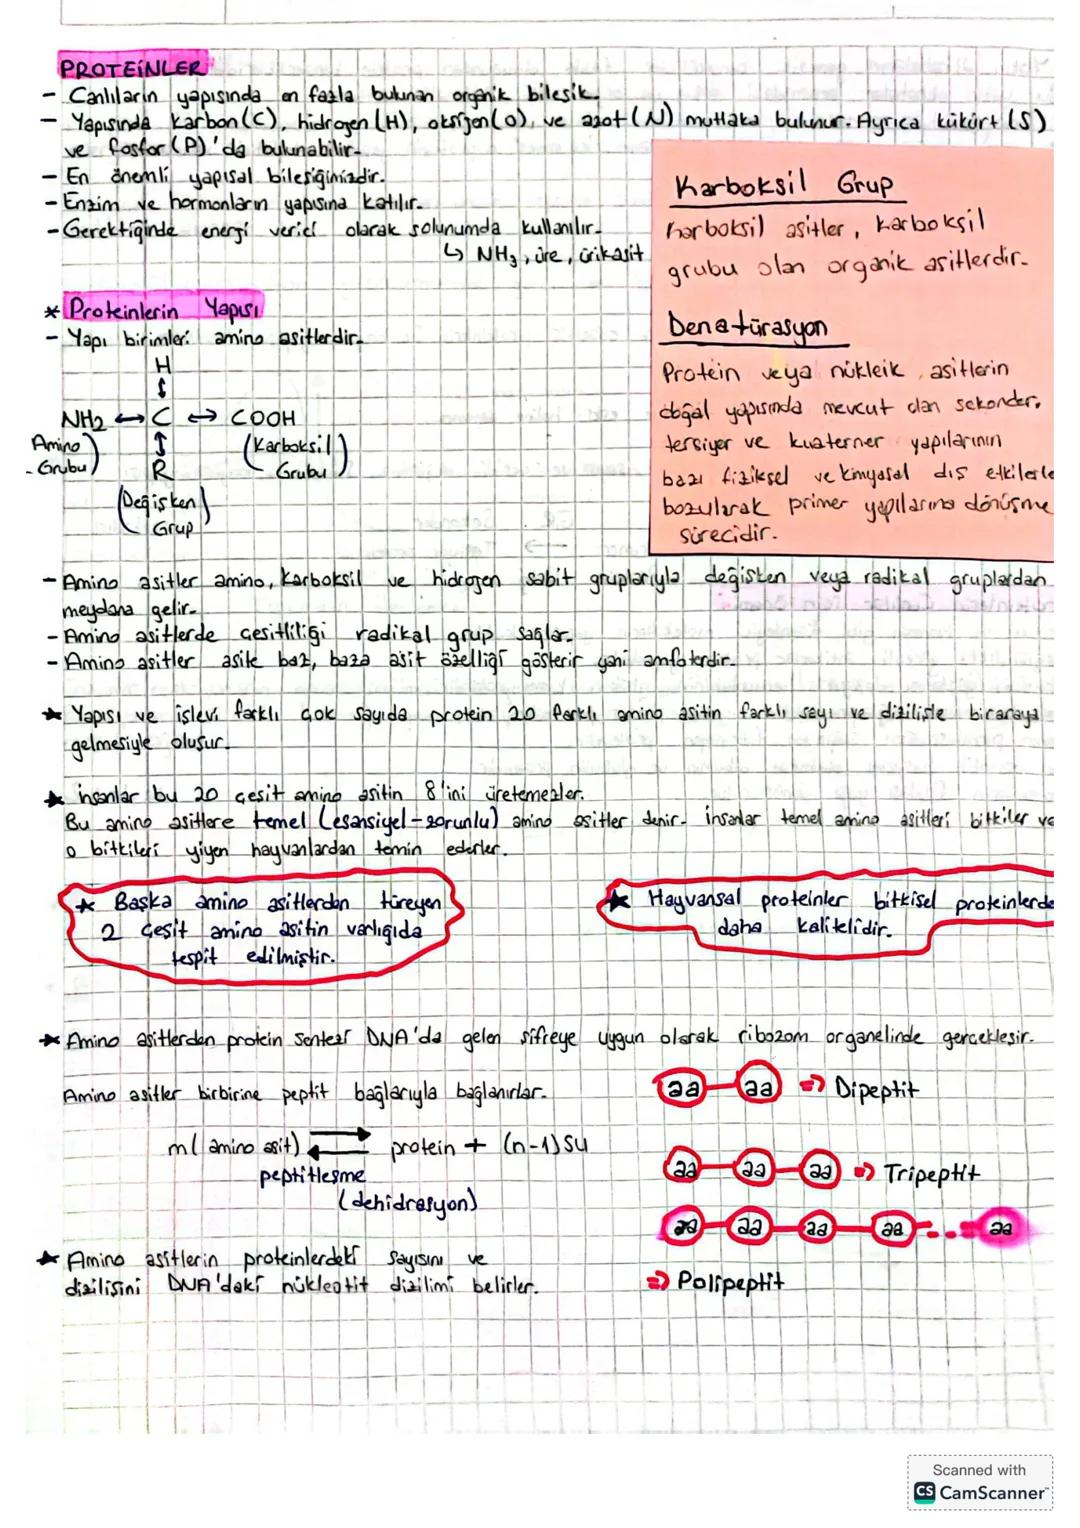 PROTEİNLER
- Canlıların yapısında en fazla bulunan organik bileşik.
- Yapısında karbon(C), hidrojen(H), oksijen(O), ve azot(N) mutlaka bulunur. Ayrıca kükürt (S)
ve fosfor(P)'da bulunabilir.
- En önemli yapısal bileşiğimizdir.
- Enzim ve hormonların yapısına katılır.
- Gerektiğinde enerji verici olarak solunumda kullanılır.
↳ NH3, üre, ürikasit
* Proteinlerin Yapısı
- Yapı birimleri amino asitlerdir.
H
↕
NH2 ↔ C ↔ COOH
(Amino Grubu) ↕ (Karboksil Grubu)
R
(Değişken Grup)
Karboksil Grup
Karboksil asitler, karboksil
grubu olan organik asitlerdir.
Denatürasyon
Protein veya nükleik asitlerin
doğal yapısında mevcut olan sekonder,
tersiyer ve kuaterner yapılarının
bazı fiziksel ve kimyasal dış etkilerle
bozularak primer yapılarına dönüşme
sürecidir.
- Amino asitler amino, karboksil ve hidrojen sabit gruplarıyla değişken veya radikal gruplardan
meydana gelir.
- Amino asitlerde çeşitliliği radikal grup sağlar.
- Amino asitler asite baz, baza asit özelliği gösterir yani amfoterdir.
* Yapısı ve işlevi farklı çok sayıda protein 20 farklı amino asitin farklı sayı ve dizilişle biraraya
gelmesiyle oluşur.
* insanlar bu 20 çeşit amino asitin 8'ini üretemezler.
Bu amino asitlere temel (esansiyel-zorunlu) amino asitler denir. insanlar temel amino asitleri bitkiler ve
o bitkileri yiyen hayvanlardan temin ederler.
* Başka amino asitlerden türeyen
2 çeşit amino asitin varlığıda
tespit edilmiştir.
* Hayvansal proteinler bitkisel proteinlerde
daha kalitelidir.
* Amino asitlerden protein sentezi DNA'da gelen şifreye uygun olarak ribozom organelinde gerçekleşir.
Amino asitler birbirine peptit bağlarıyla bağlanırlar.
aa aa ⇒ Dipeptit
m(amino asit) ⇄ protein + (n-1)SU
peptitleşme
(dehidrasyon)
aa aa aa ⇒ Tripeptit
aa aa aa aa aa
⇒ Polipeptit
* Amino asitlerin proteinlerdeki sayısını ve
dizilişini DNA'daki nükleotit dizilimi belirler.
Scanned with
CS CamScanner